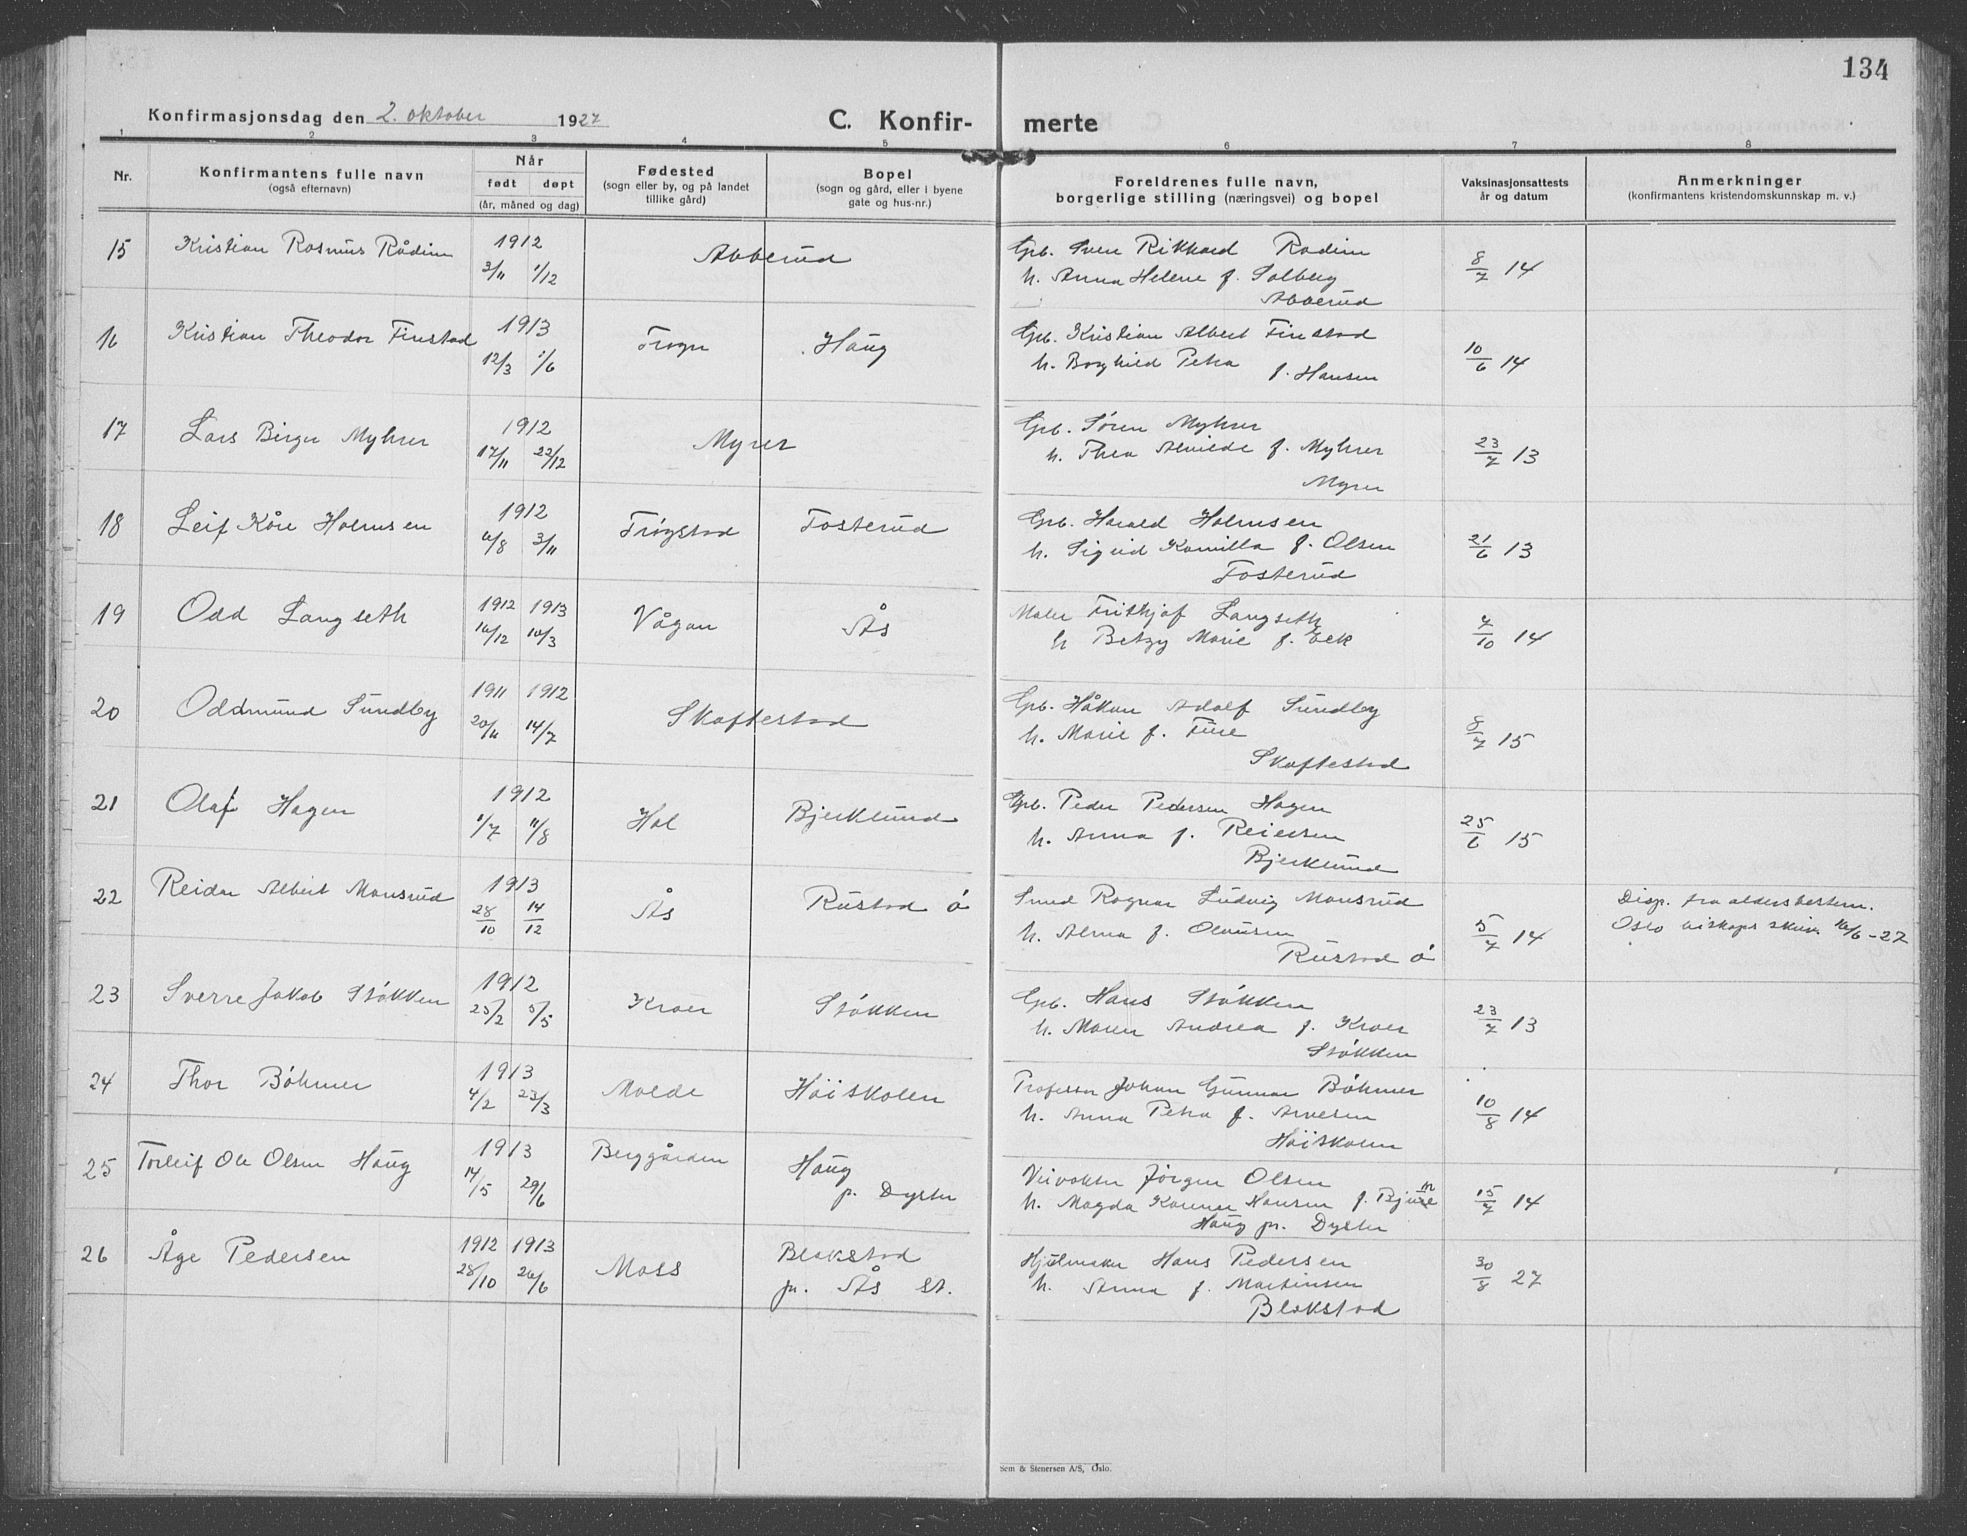 134
Konfirmasjonsdag den 2. oktober 1927
C. Konfir- merte
1 2 3 4 5 6 7 8
Nr.
Konfirmantens fulle navn
(også efternavn)
Når
født døpt
(år, måned og dag)
Fødested
(sogn eller by, og på landet
tillike gård)
Bopel
(sogn og gård, eller i byene
gate og hus-nr.)
Foreldrenes fulle navn,
borgerlige stilling (næringsvei) og bopel
Vaksinasjonsattests
år og datum
Anmerkninger
(konfirmantens kristendomskunnskap m. v.)
15 Kristian Rasmus Rådim 1912 3/11 1/12 Abberud
Gb. Sven Rikkard Radim
h. Anna Helene f. Solberg
Abberud
8/7 14
16 Kristian Theodor Finstad 1913 12/3 1/6 Frogn Haug
Gb. Kristian Albert Finstad
h. Borghild Petra f. Hansen
10/6 14
17 Lars Birger Myhrer 1912 17/11 22/12 Myrer
Gb. Søren Myhrer
h. Thea Alvilde f. Myhrer
Myrer
23/7 13
18 Leif Kåre Holmsen 1912 6/8 3/11 Trøgstad Fosterud
Gb. Harald Holmsen
h. Sigrid Kamilla f. Olsen
Fosterud
21/6 13
19 Odd Langseth 1912 1913 16/12 16/3 Vågan Ås
Maler Frithjof Langseth
h Betzy Marie f. Eek
7/10 14
20 Oddmund Sundby 1911 1912 20/11 14/7 Skaftestad
Gb. Håkon Adolf Sundby
h. Marie f. Fure
Skaftestad
8/7 15
21 Olaf Hagen 1912 1/7 11/8 Hol Bjerklund
Gb. Peder Pedersen Hagen
h. Anna f. Reiersen
Bjerklund
25/6 15
22 Reidar Albert Mansrud 1913 28/10 14/12 Ås Rustad ø
Smed Ragnar Ludvig Mansrud
h. Alma f. Olausen
Rustad ø
5/7 14
Disp. fra aldersbestem.
Oslo biskops skriv. 16/6-27
23 Sverre Jakob Støkken 1912 25/2 5/5 Kroer Støkken
Gb. Hans Støkken
h. Maren Andrea f. Kroer
Støkken
23/7 13
24 Thor Böhmer 1913 4/2 23/3 Molde Høiskolen
Professor Johan Gunnar Böhmer
h. Anna Petra f. Arnesen
Høiskolen
10/8 14
25 Torleif Ole Olsen Haug 1913 14/5 29/6 Berggården Haug
p. Dyster
Veivokter Jørgen Olsen
h. Magda Karense Hansen f.
Haug pr. Dyster
15/7 14
26 Åge Pedersen 1912 1913 28/10 26/6 Moss Blakstad
pr. Ås st.
Hjulmaker Hans Pedersen
h. Anna f. Martinsen
Blakstad
30/8 27
Sem & Stenersen A/S, Oslo.